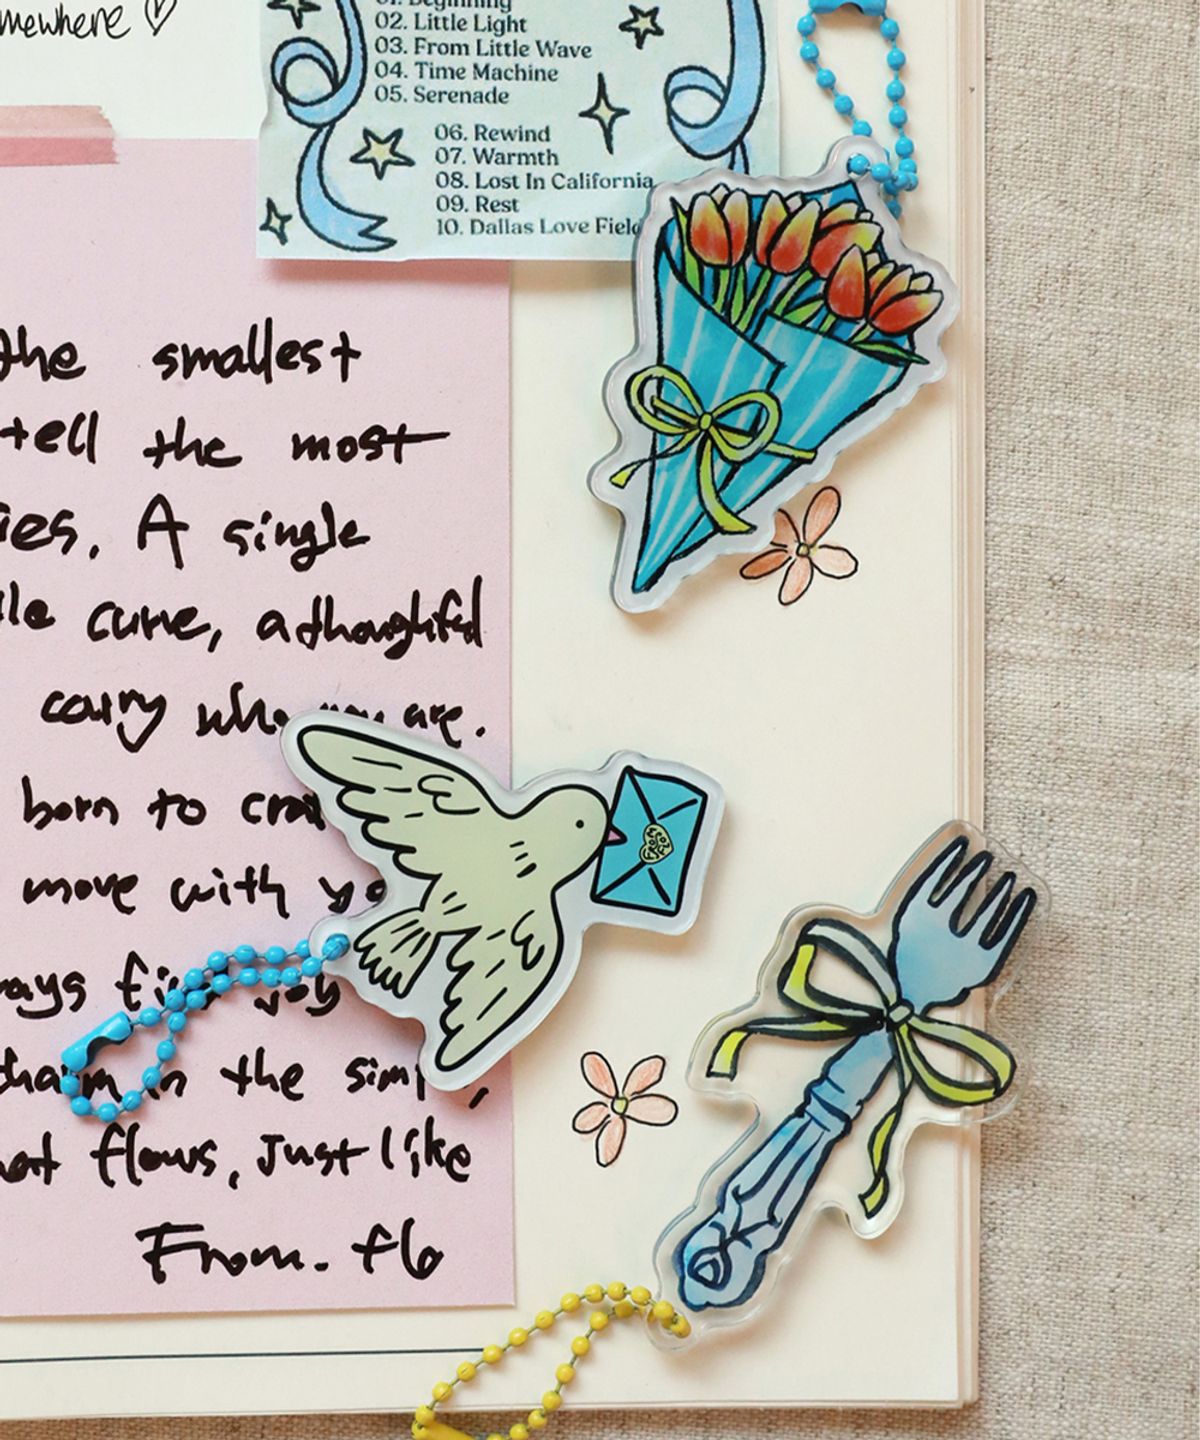 mewhere ♡
01. Beginning
02. Little Light
03. From Little Wave
04. Time Machine
05. Serenade
06. Rewind
07. Warmth
08. Lost In California
09. Rest
10. Dallas Love Field
the smallest
tell the most
ies. A single
le curve, a thoughtful
carry who you are.
born to cra
move with yo
ays fi joy
charm in the simp,
at flows, just like
From. flo
FROM FLO